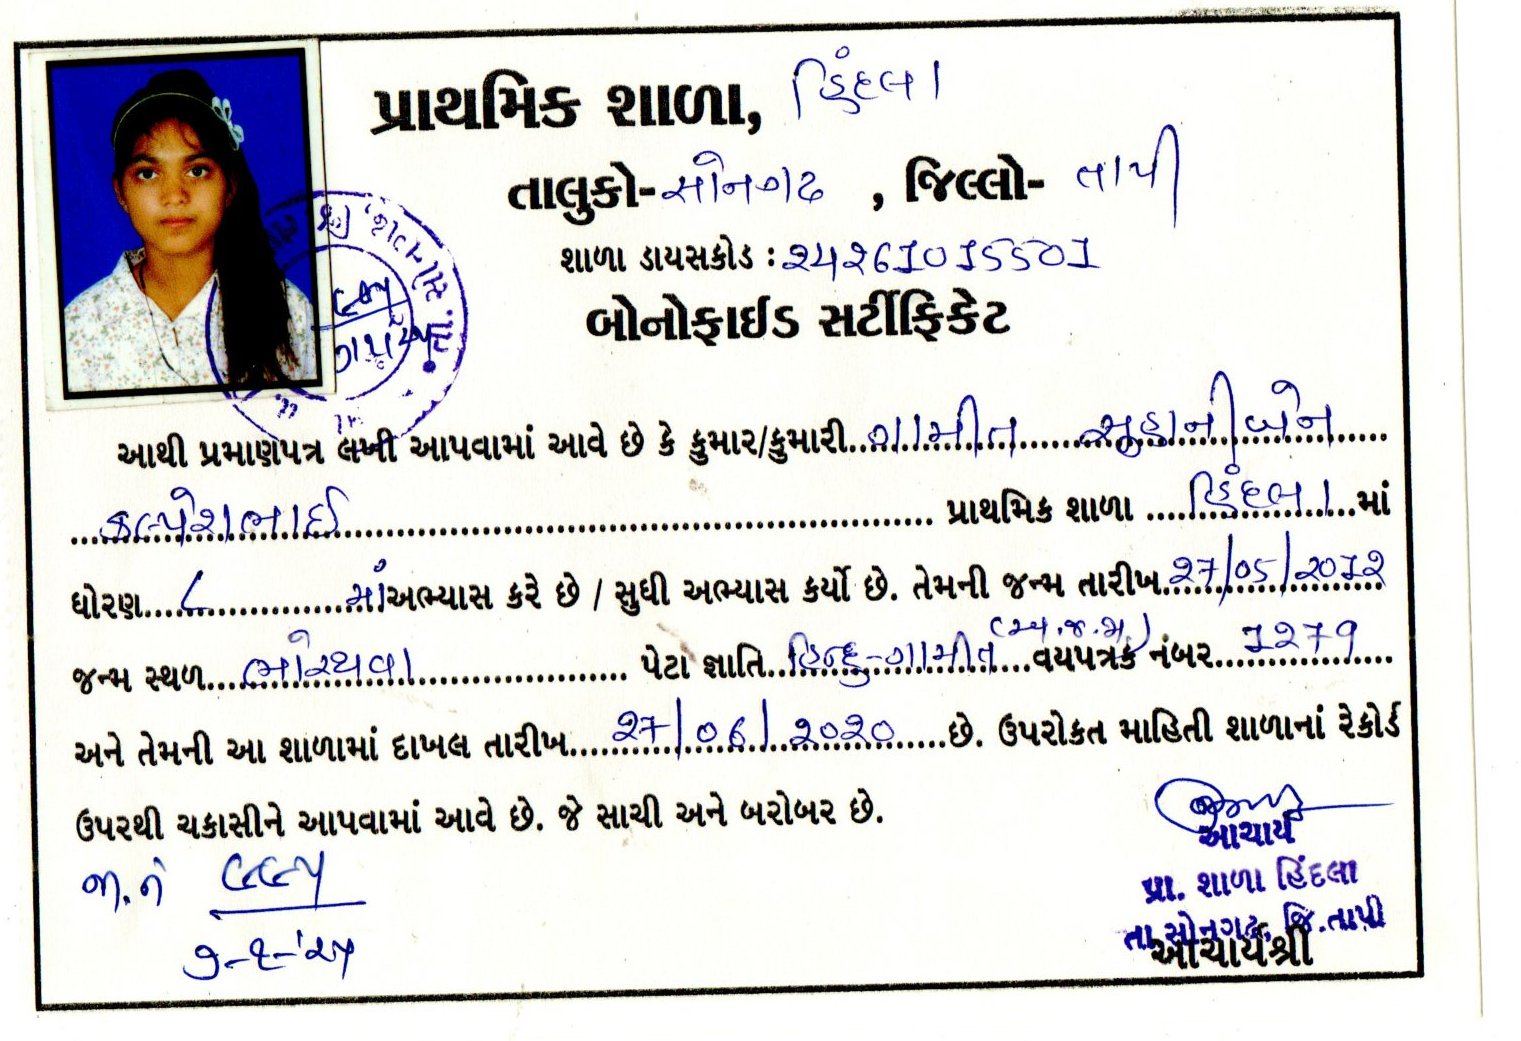 પ્રાથમિક શાળા, હિંદલા
તાલુકો-સોનગઢ , જિલ્લો- તાપી
શાળા ડાયસકોડ : 24261015501
બોનોફાઈડ સર્ટીફિકેટ
આથી પ્રમાણપત્ર લખી આપવામાં આવે છે કે કુમાર/કુમારી..ગામીત સુહાનીબેન
કલ્પેશભાઈ પ્રાથમિક શાળા ..હિંદલા..માં
ધોરણ..૮..માં અભ્યાસ કરે છે / સુધી અભ્યાસ કર્યો છે. તેમની જન્મ તારીખ..27/05/2012
જન્મ સ્થળ..ભોરથવા.. પેટા જ્ઞાતિ..હિન્દુ-ગામીત (અ.જ.જા.)..વયપત્રક નંબર..1279
અને તેમની આ શાળામાં દાખલ તારીખ..27/06/2020..છે. ઉપરોકત માહિતી શાળાનાં રેકોર્ડ
ઉપરથી ચકાસીને આપવામાં આવે છે. જે સાચી અને બરોબર છે.
જા.નં ૮૮૫
આચાર્ય
પ્રા. શાળા હિંદલા
તા.સોનગઢ, જિ.તાપી
આચાર્યશ્રી